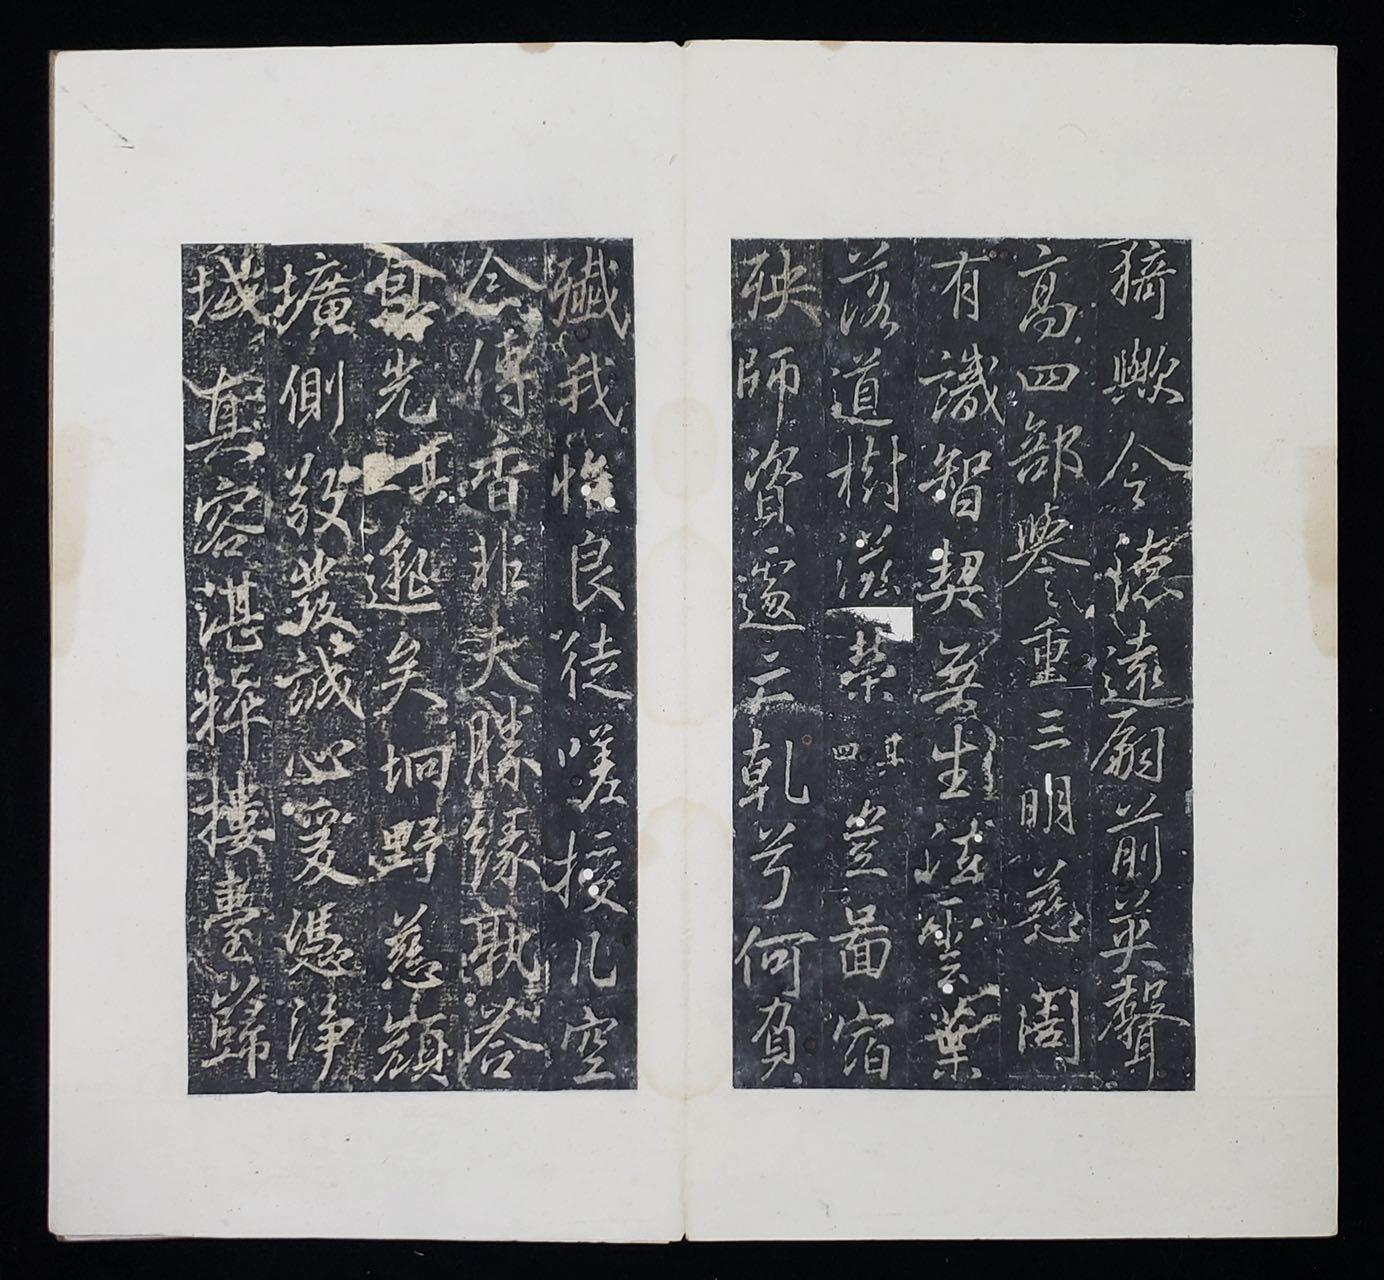 猗歟令德遠嗣前英聲
高四部譽重三明慈周
有識智契無生法雲葉
落道樹滋榮其四豈圖宿
殃師資遽亡乾兮何負
殲我惟良徒嗟授几空
令傳香非夫勝緣孰答
其先其邈矣坰野慈顏
壙側敬發誠心爰憑淨
域真容湛粹樓臺歸